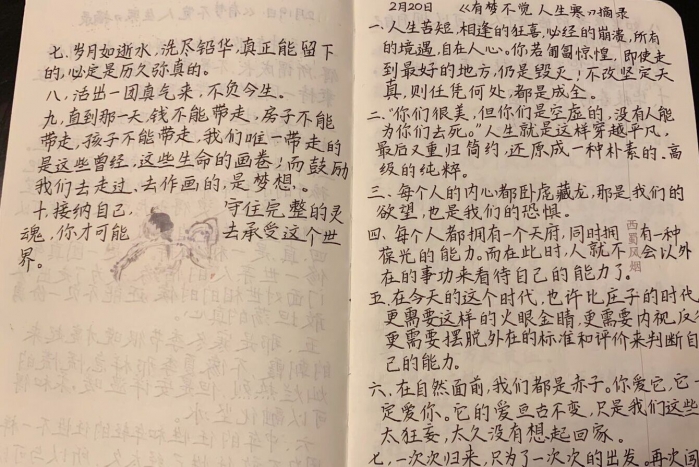 七、岁月如逝水，洗尽铅华，真正能留下
的，必定是历久弥真的。
八、活出一团真气来，不负今生。
九、直到那一天，钱不能带走，房子不能
带走，孩子不能带走，我们唯一带走的
是这些曾经，这些生命的画卷；而鼓励
我们去走过、去作画的，是梦想。
十、接纳自己，守住完整的灵
魂，你才可能去承受这个世
界。
2月20日 《有梦不觉人生寒》摘录
一、人生苦短，相逢的狂喜，必经的崩溃，所有
的境遇，自在人心。你若匍匐惊惶，即使走
到最好的地方，仍是毁灭；不改坚定天
真，则任凭何处，都是成全。
二、“你们很美，但你们是空虚的，没有人能
为你们去死。”人生就是这样穿越平凡，
最后又重归简约，还原成一种朴素的、高
级的纯粹。
三、每个人的内心都卧虎藏龙，那是我们的
欲望，也是我们的恐惧。
四、每个人都拥有一个天府，同时拥有一种
葆光的能力。而在此时，人就不会以外
在的事功来看待自己的能力了。
西蜀风烟
五、在今天的这个时代，也许比庄子的时代
更需要这样的火眼金睛，更需要内视反
更需要摆脱外在的标准和评价来判断自
己的能力。
六、在自然面前，我们都是赤子。你爱它，它一
定爱你。它的爱亘古不变，只是我们这些
太狂妄，太久没有想起回家。
七、一次次归来，只为了一次次的出发。再次